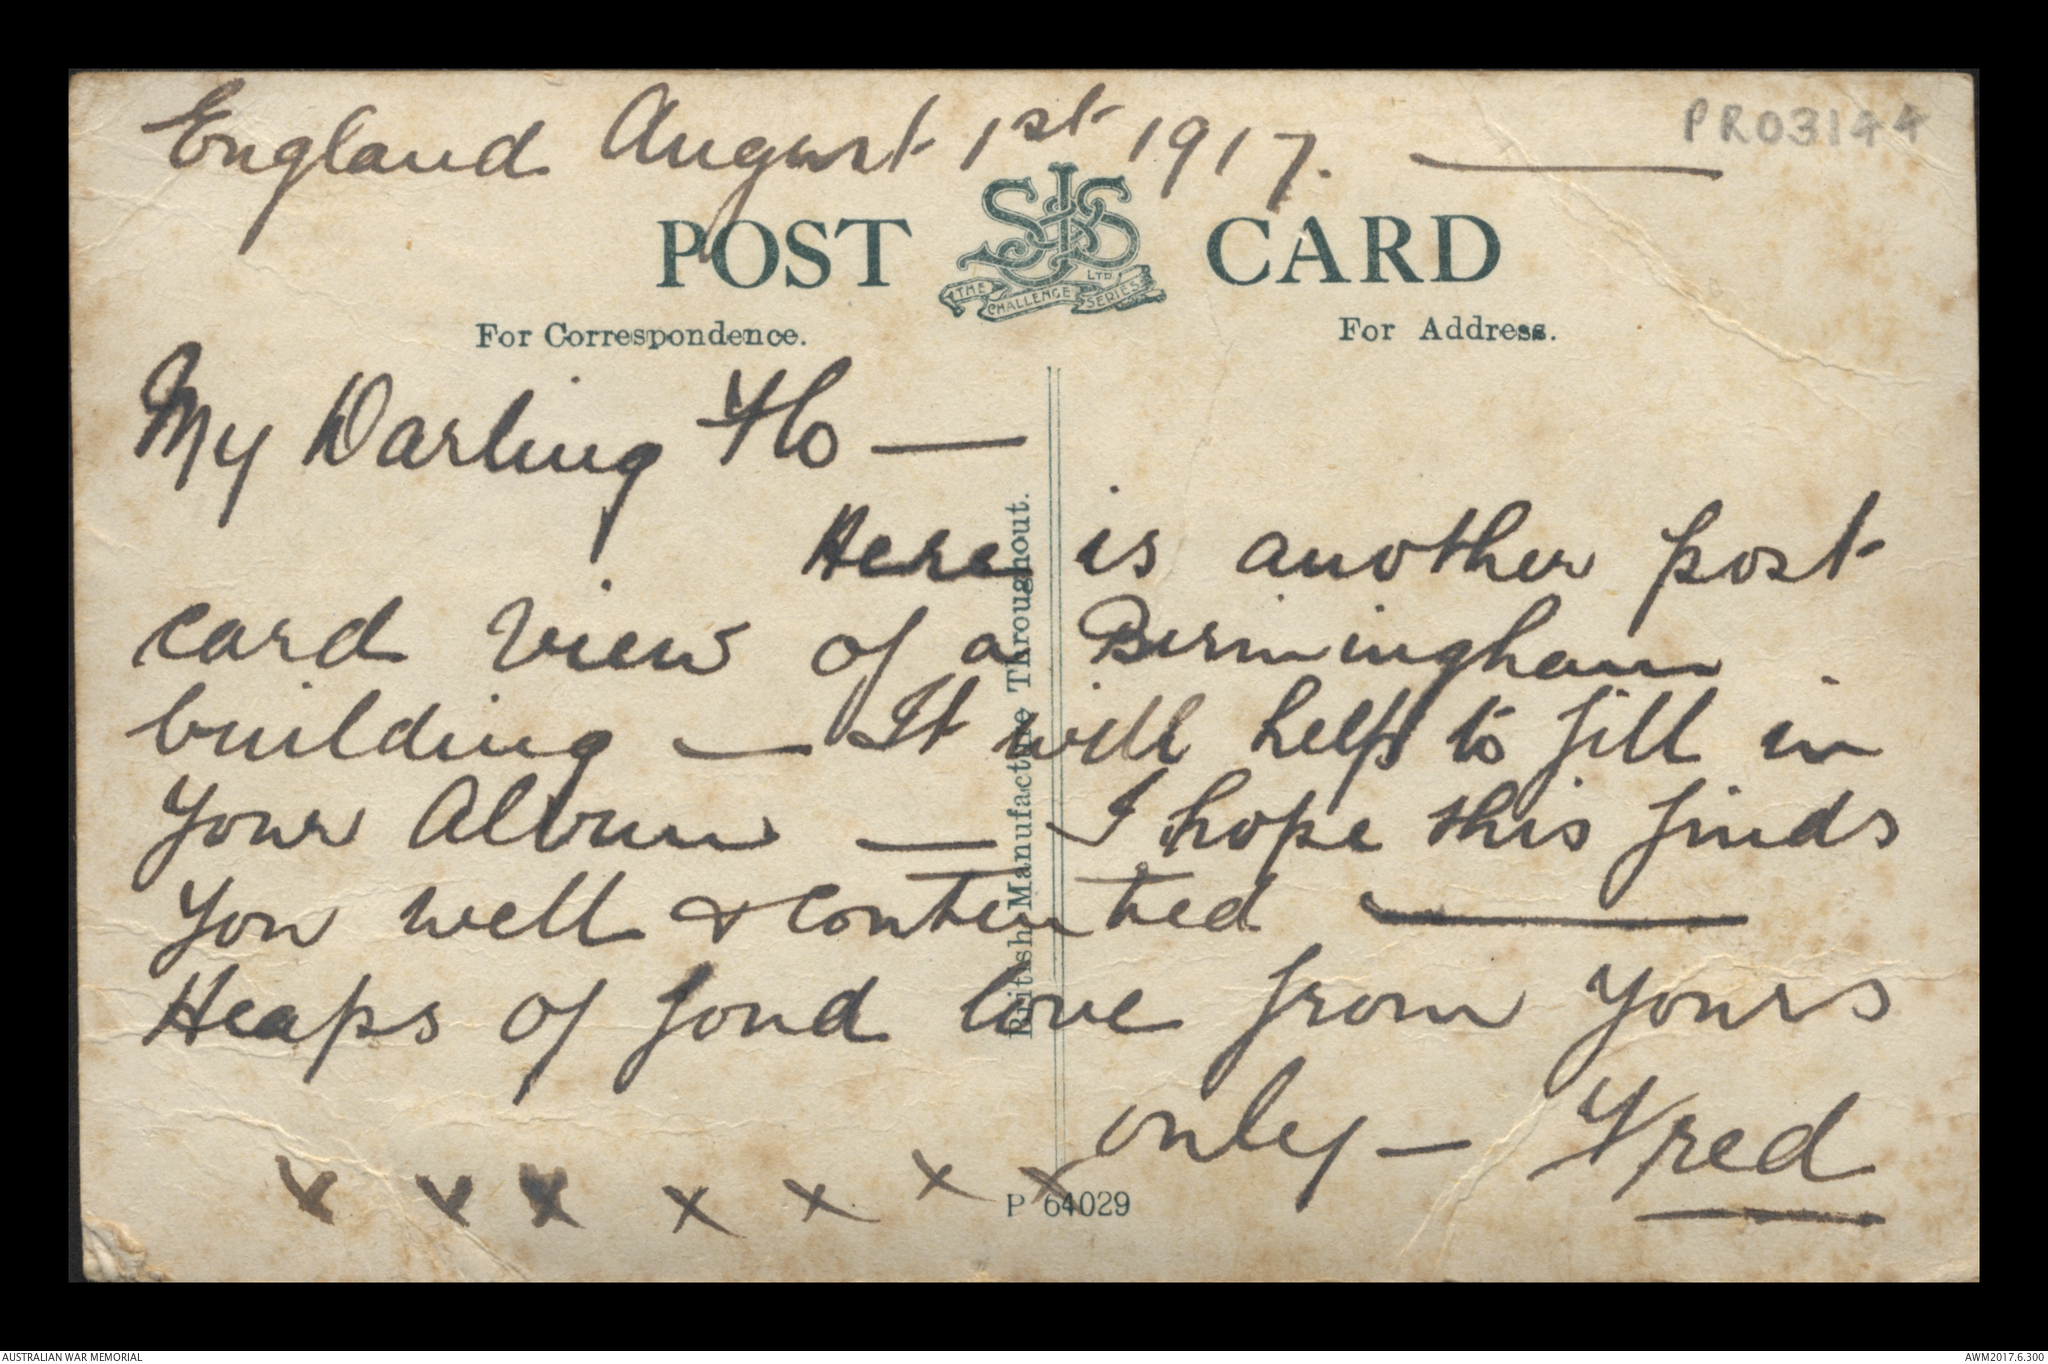 England August 1st 1917. —
PR03144
POST CARD
SJS LTD.
THE CHALLENGE SERIES
For Correspondence.
For Address.
My Darling Flo —
Here is another post
card view of a Birmingham
building — It will help to fill in
Your Album — I hope this finds
You well & contented —
Heaps of fond love from Yours
only — Fred
x x x x x x x
British Manufacture Throughout.
P 64029
AUSTRALIAN WAR MEMORIAL
AWM2017.6.300